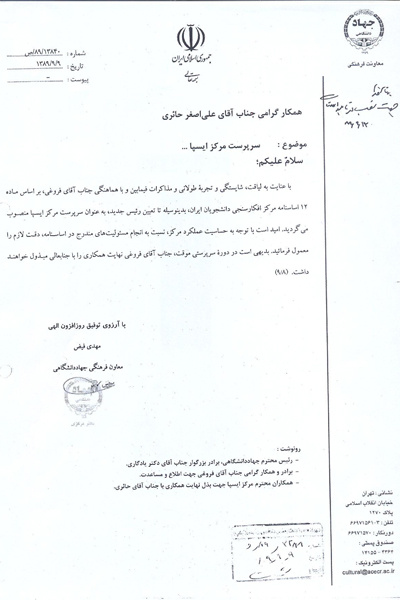 جهاد
دانشگاهی
معاونت فرهنگی
جمهوری اسلامی ایران
شماره : ۸۹/۱۳۸۴۰/ص
تاریخ : ۱۳۸۹/۹/۹
پیوست : -
همکار گرامی جناب آقای علی‌اصغر حائری
موضوع : سرپرست مرکز ایسپا ...
سلامٌ علیکم؛
با عنایت به لیاقت، شایستگی و تجربهٔ طولانی و مذاکرات فیمابین و با هماهنگی جناب آقای فروغی، بر اساس ماده
۱۲ اساسنامه مرکز افکارسنجی دانشجویان ایران، بدینوسیله تا تعیین رئیس جدید، به عنوان سرپرست مرکز ایسپا منصوب
می گردید. امید است با توجه به حساسیت عملکرد مرکز، نسبت به انجام مسئولیت‌های مندرج در اساسنامه، دقت لازم را
معمول فرمائید. بدیهی است در دورهٔ سرپرستی موقت، جناب آقای فروغی نهایت همکاری را با جنابعالی مبذول خواهند
داشت. (۹/۸)
با آرزوی توفیق روزافزون الهی
مهدی فیض
معاون فرهنگی جهاددانشگاهی
جهاد
دانشگاهی
دفتر مرکزی
رونوشت :
– رئیس محترم جهاددانشگاهی، برادر بزرگوار جناب آقای دکتر یادگاری.
– برادر و همکار گرامی جناب آقای فروغی جهت اطلاع و مساعدت.
– همکاران محترم مرکز ایسپا جهت بذل نهایت همکاری با جناب آقای حائری.
نشانی : تهران
خیابان انقلاب اسلامی
پلاک ۱۲۷۰
تلفن : ۳-۶۶۹۷۵۶۱
دورنگار : ۶۶۹۷۱۵۷۰
صندوق پستی :
۱۴۱۵۵ – ۴۳۶۴
پست الکترونیک :
cultural@acecr.ac.ir